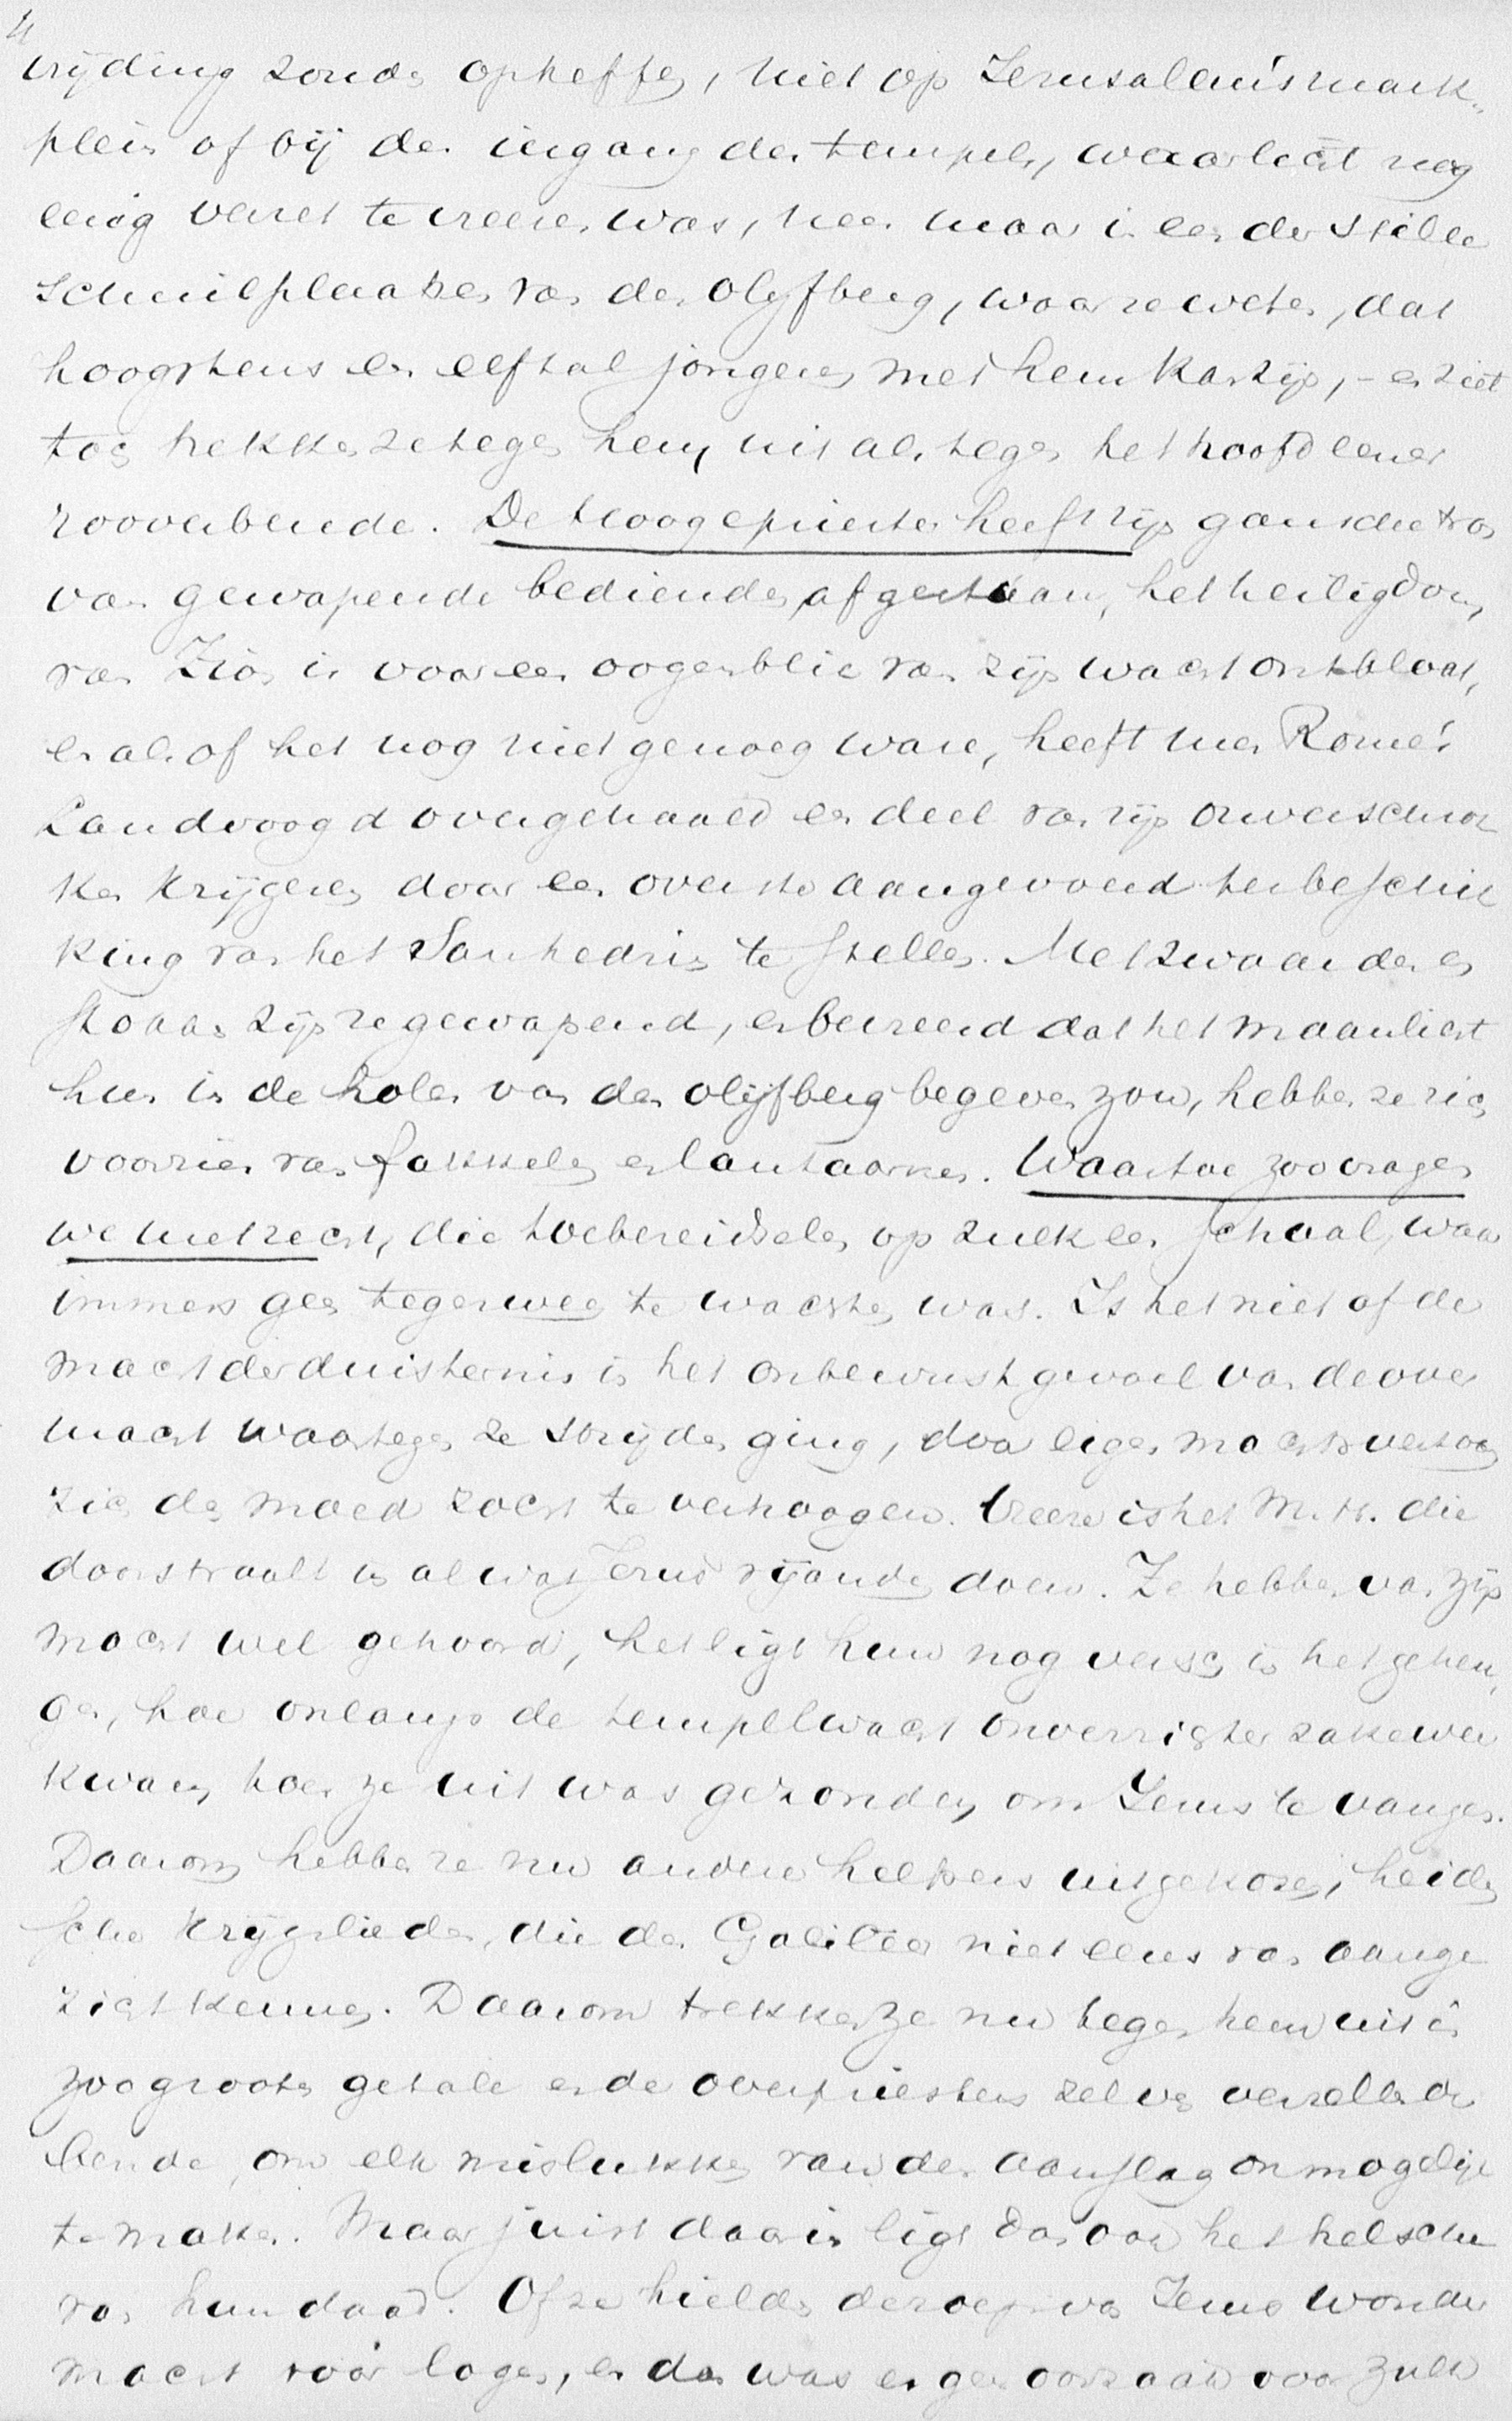 4
vrijding zonde opheffen, niet op Jerusalem's mark-
plein of bij den ingang des tempels, waar licht nog
eenig verzet te vreezen was, neen maar in een der stille
schuilplaatsen van den Olijfberg, waar ze weten, dat
hoogstens een elftal jongeren met hem kan zijn, - en ziet
toch trekken ze tegen hem uit als tegen het hoofd eener
rooverbende. De Hoogepriester heeft zijn gansche tros
van gewapende bedienden afgestaan, het heiligdom
van Zion is voor een oogenblik van zijn wacht ontbloot,
en als of het nog niet genoeg ware, heeft men Rome's
Landvoogd overgehaald een deel van zijn onverschrok
ken krijgers door een overste aangevoerd ter beschik
king van het Sanhedrin te stellen. Met zwaarden en
stokken zijn ze gewapend, en bevreesd dat het maanlicht
hun in de holen van den olijfberg begeven zou, hebben ze zich
voorzien van fakkelen en lantaarnen. Waartoe zoo vragen
we met recht, die toebereidselen op zulk een schaal, waar
immers geen tegenweer te wachten was. Is het niet of de
macht der duisternis in het onbewust gevoel van de over
macht waartegen ze strijden ging, door eigen machtsvertoon
zich den moed zocht te verhoogen. Vreeze is het M. H. die
doorstraalt in al wat Jezus' vijanden doen. Ze hebben van zijn
macht wel gehoord, het ligt hun nog versch in het geheu,
gen, hoe onlangs de tempelwacht onverrichter zake weer
kwam, toen ze uit was gezonden om Jezus te vangen.
Daarom hebben ze nu andere helpers uitgekozen, heiden
sche krijgslieden, die den Galileer niet eens van aange
zicht kennen. Daarom trekken ze nu tegen hem uit in
zoo grooten getale en de overpriesters zelven verzellen de
bende, om elk mislukken van den aanslag onmogelijk
te maken. Maar juist daarin ligt dan ook het helsche
van hun daad. Of ze hielden de roep van Jezus wonder
macht voor logen, en dan was er geen oorzaak voor zulk